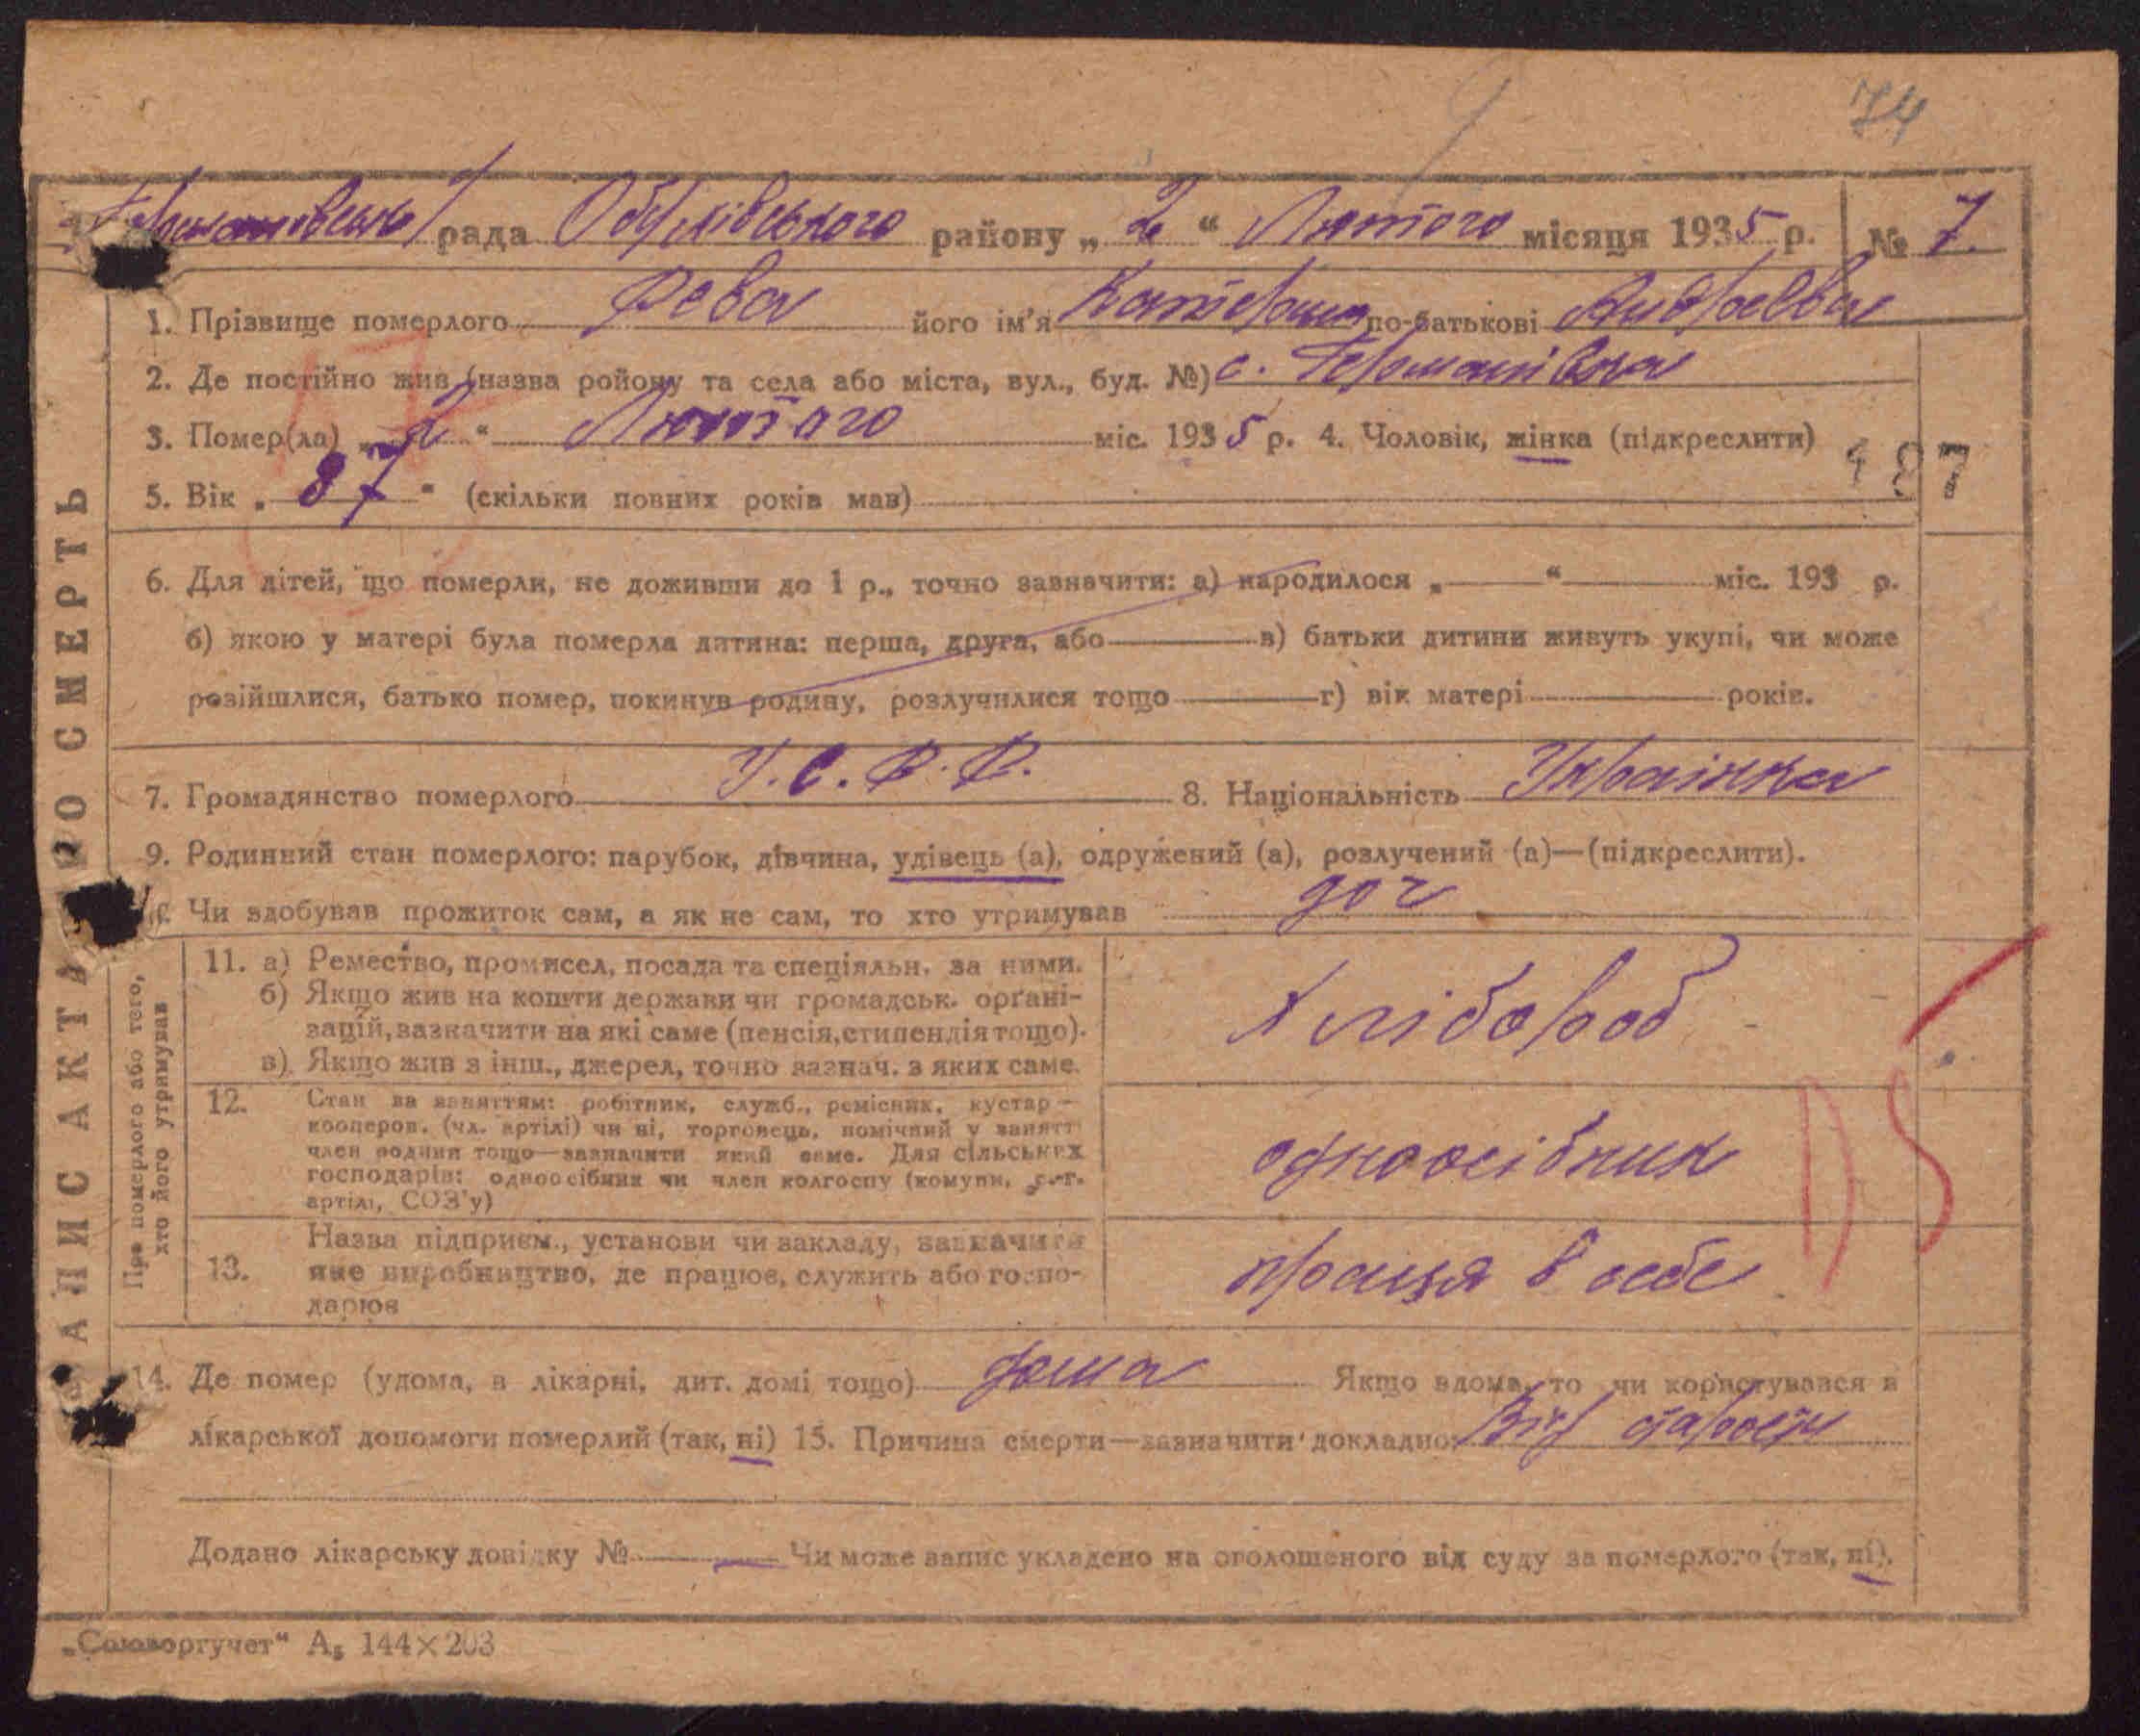 74
Германовська рада Обухівського району „ 2 “ Лютого місяця 1935 р. № 7.
1. Прізвище померлого Рева його ім’я Катерина по-батькові Андреєва
2. Де постійно жив (назва ройону та села або міста, вул., буд. №) с. Германівка
3. Помер(ла) „ 2 “ Лютого міс. 1935 р. 4. Чоловік, жінка (підкреслити)
187
5. Вік „ 87 “ (скільки повних років мав)
6. Для дітей, що померли, не доживши до 1 р., точно зазначити: а) народилося „ “ міс. 193 р.
б) якою у матері була померла дитина: перша, друга, або в) батьки дитини живуть укупі, чи може
розійшлися, батько помер, покинув родину, розлучилися тощо г) вік матері років.
7. Громадянство померлого У.С.Р.Р. 8. Національність Українка
9. Родинний стан померлого: парубок, дівчина, удівець (а), одружений (а), розлучений (а)—(підкреслити).
Чи здобував прожиток сам, а як не сам, то хто утримував доч
11. а) Ремество, промисел, посада та спеціяльн. за ними.
б) Якщо жив на кошти держави чи громадськ. орґані-
зацій, зазначити на які саме (пенсія, стипендія тощо).
в) Якщо жив з інш., джерел, точно зазнач. з яких саме.
Хлібороб
12. Стан за заняттям: робітник, служб., ремісник, кустар—
кооперов. (чл. артілі) чи ні, торговець, помічний у занятт
член родини тощо—зазначити який саме. Для сільських
господарів: одноосібник чи член колгоспу (комуни, с.-г.
артілі, СОЗ’у)
одноосібник
13. Назва підприєм., установи чи закладу, зазначити
яке виробництво, де працює, служить або госпо-
дарює
праця в себе
14. Де помер (удома, в лікарні, дит. домі тощо) дома Якщо вдома, то чи користувався з
лікарської допомоги померлий (так, ні) 15. Причина смерти—зазначити докладно: Від старости
Додано лікарську довідку № Чи може запис укладено на оголошеного від суду за померлого (так, ні).
„Союзоргучет“ А5 144×203
ЗАПИС АКТА ПРО СМЕРТЬ
Про померлого або того,
хто його утримував